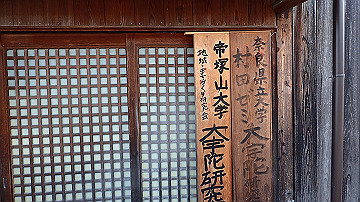 奈良県立大学
村田ゼミ大宇陀研究
帝塚山大学
地域・まちづくり研究会
大宇陀研究